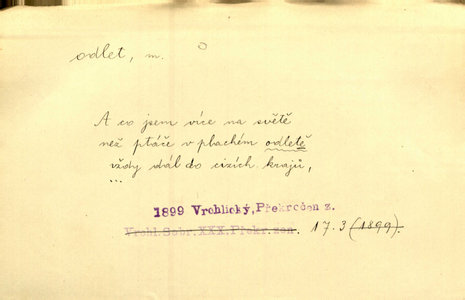 odlet, m.
A co jsem více na světě
než ptáče v plachém odletě
vždy dál do cizích krajů,
...
1899 Vrchlický, Překročen z.
Vrchl.Sebr.XXX.Překr.zen. 17.3 (1899).